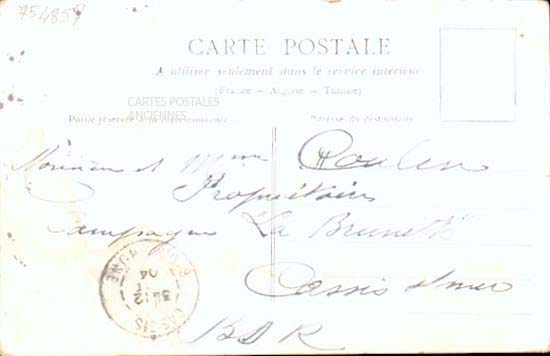 754859
CARTE POSTALE
A utiliser seulement dans le service intérieur
(France - Algérie - Tunisie)
CARTES POSTALES
ANCIENNES
Partie réservée à la correspondance
Adresse du destinataire
Monsieur et Mme Roulin
Propriétaires
Campagne "La Brunette"
Cassis s/ mer
B D R
CASSIS
31 12
04